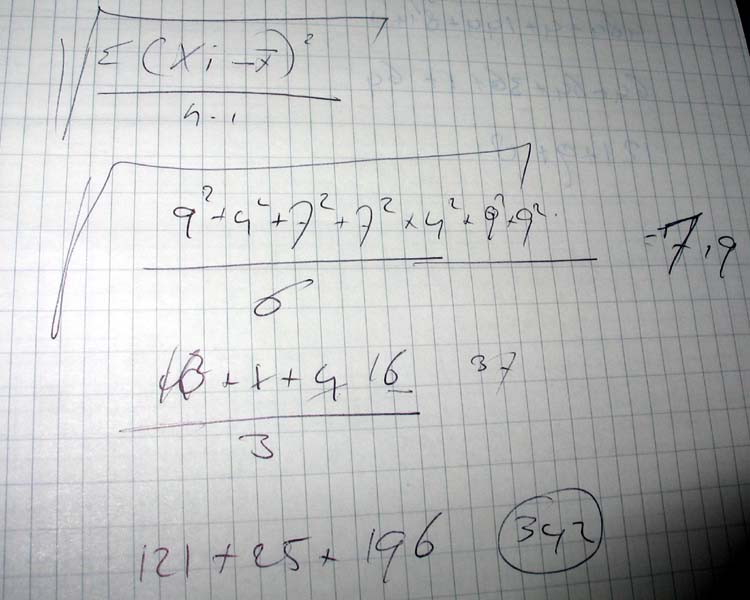 √ Σ (Xi - x̄)²
n-1
√ 9² + 4² + 7² + 7² + 4² + 9² + 9² = 7,9
6
+ 1 + 4 16 37
3
121 + 25 + 196 342